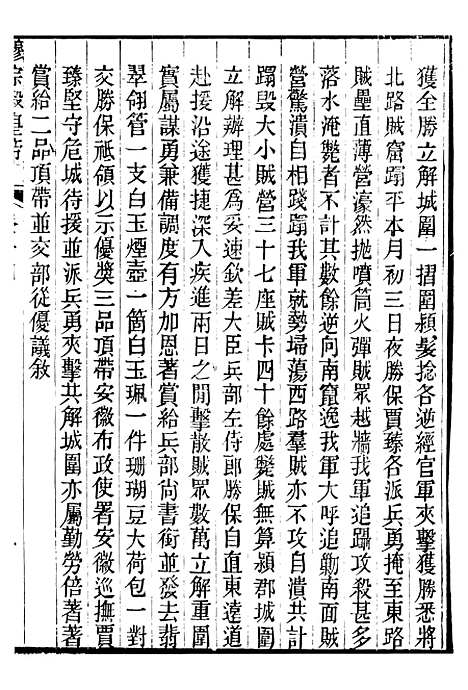 獲全勝立解城圍一摺圍潁髮捻各逆經官軍夾擊獲勝悉將
北路賊窟蹋平本月初三日夜勝保賈臻各派兵勇掩至東路
賊壘直薄營濠然拋噴筒火彈賊眾越牆我軍追躡攻殺甚多
落水淹斃者不計其數餘逆向南竄逸我軍大呼追勦南面賊
營驚潰自相踐蹋我軍就勢埽蕩西路羣賊亦不攻自潰共計
蹋毀大小賊營三十七座賊卡四十餘處斃賊無算潁郡城圍
立解辦理甚爲妥速欽差大臣兵部左侍郎勝保自直東遠道
赴援沿途獲捷深入疾進兩日之閒擊散賊眾數萬立解重圍
實屬謀勇兼備調度有方加恩著賞給兵部尚書銜並發去翡
翠翎管一支白玉煙壺一箇白玉珮一件珊瑚豆大荷包一對
交勝保祗領以示優獎三品頂帶安徽布政使署安徽巡撫賈
臻堅守危城待援並派兵勇夾擊共解城圍亦屬勤勞倍著著
賞給二品頂帶並交部從優議敘